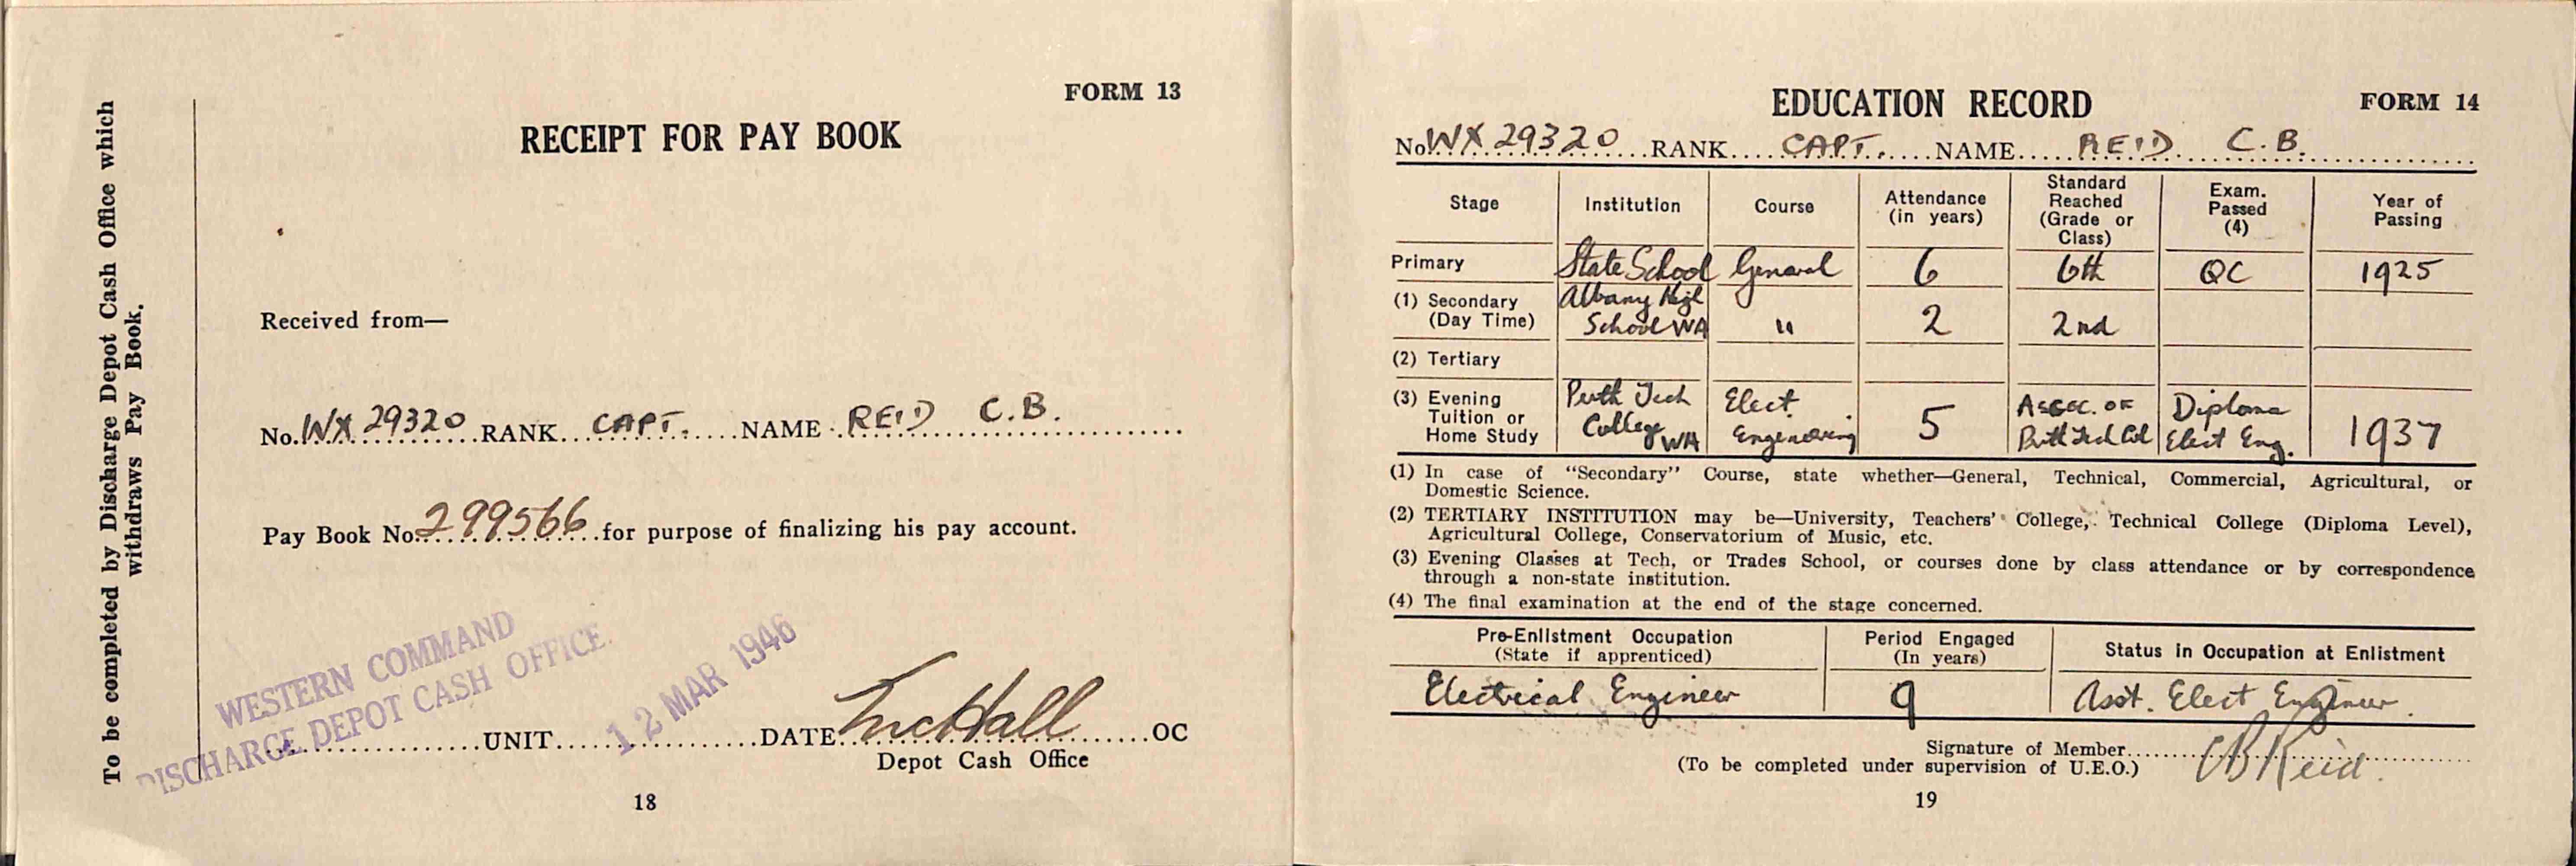 To be completed by Discharge Depot Cash Office which
withdraws Pay Book.
FORM 13
RECEIPT FOR PAY BOOK
Received from—
No. WX 29320 RANK CAPT. NAME REID C.B.
Pay Book No. 299566 for purpose of finalizing his pay account.
WESTERN COMMAND
DISCHARGE DEPOT CASH OFFICE.
12 MAR 1946
UNIT DATE OC
Depot Cash Office
18
FORM 14
EDUCATION RECORD
No. WX 29320 RANK CAPT. NAME REID C.B.
Stage Institution Course Attendance (in years) Standard Reached (Grade or Class) Exam. Passed (4) Year of Passing
Primary State School General 6 6th QC 1925
(1) Secondary (Day Time) Albany High School WA " 2 2nd
(2) Tertiary
(3) Evening Tuition or Home Study Perth Tech College WA Elect. Engineering 5 Assoc. of Perth Tech Col Diploma Elect Eng. 1937
(1) In case of "Secondary" Course, state whether—General, Technical, Commercial, Agricultural, or
Domestic Science.
(2) TERTIARY INSTITUTION may be—University, Teachers' College, Technical College (Diploma Level),
Agricultural College, Conservatorium of Music, etc.
(3) Evening Classes at Tech, or Trades School, or courses done by class attendance or by correspondence
through a non-state institution.
(4) The final examination at the end of the stage concerned.
Pre-Enlistment Occupation (State if apprenticed) Period Engaged (In years) Status in Occupation at Enlistment
Electrical Engineer 9 Asst. Elect Engineer.
Signature of Member CB Reid.
(To be completed under supervision of U.E.O.)
19